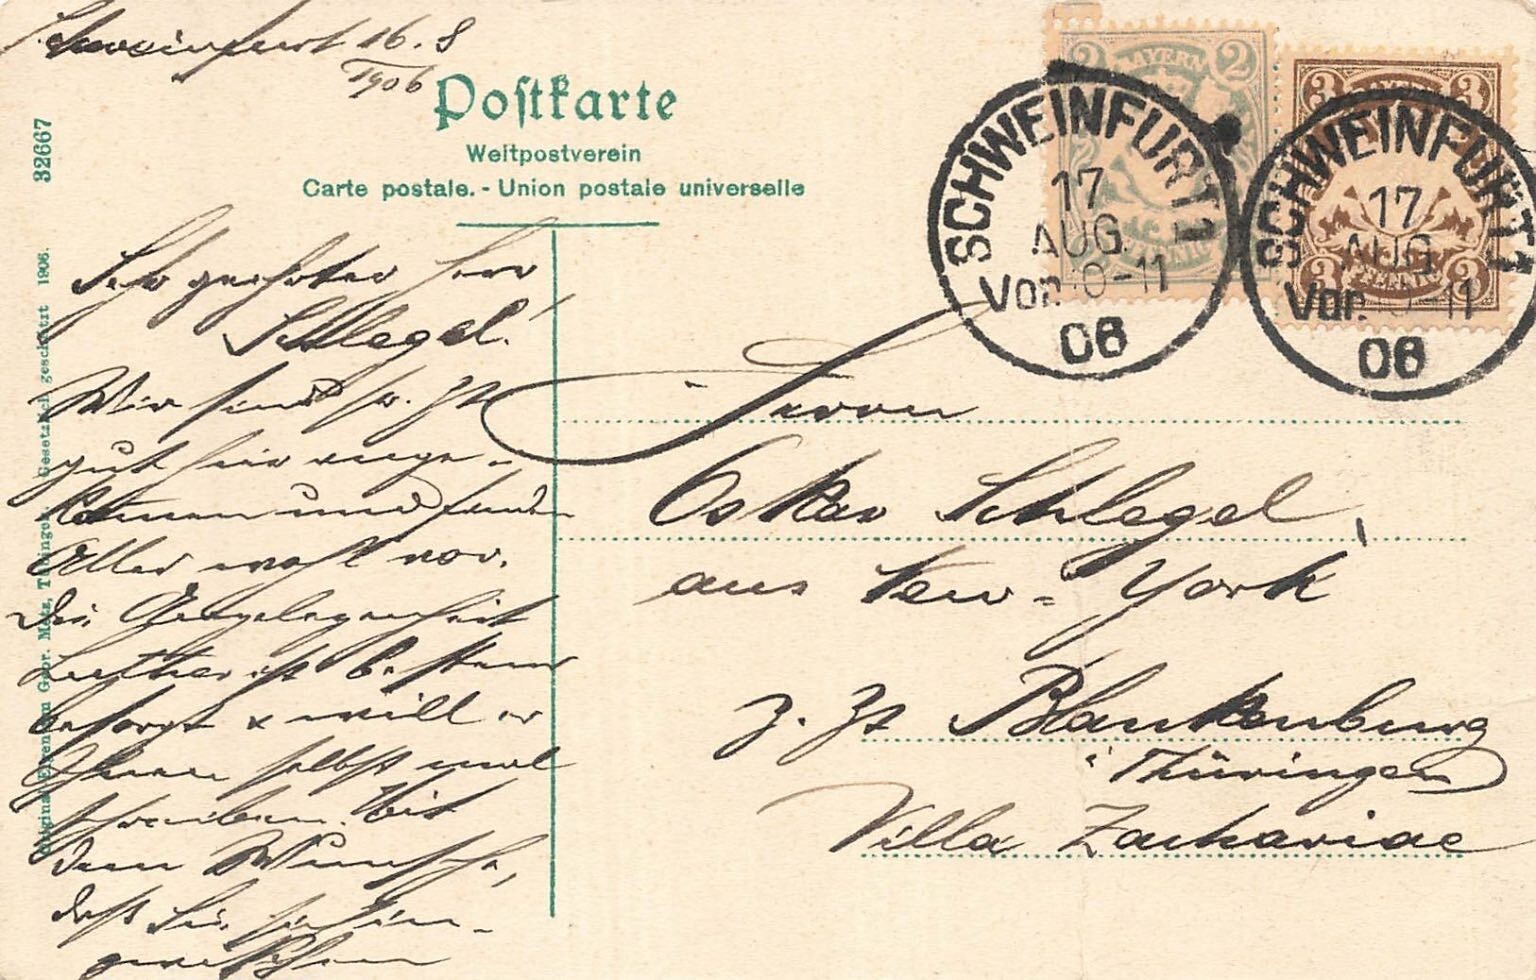 Schweinfurt 16. 8
1906
Postkarte
Weltpostverein
Carte postale. - Union postale universelle
32667
Original-Eigentum Geor. Metz, Tübingen. Gesetzlich geschützt 1906.
2 BAYERN 2
3 3
SCHWEINFURT 1
17
AUG.
Vor. 10-11
06
SCHWEINFURT 1
17
AUG.
Vor. 10-11
06
Sehr geehrter Herr
Schlegel!
Wir sind
gut hier ange-
kommen und finden
Alles wohl vor.
Die Angelegenheit
Luther ist bestens
besorgt & will er
Ihnen selbst mal
schreiben. Mit
dem Wunsche,
daß Sie sich in-
zwischen
Herrn
Oskar Schlegel,
aus New-York
z. Zt Blankenburg
i Thüringen
Villa Zachariae